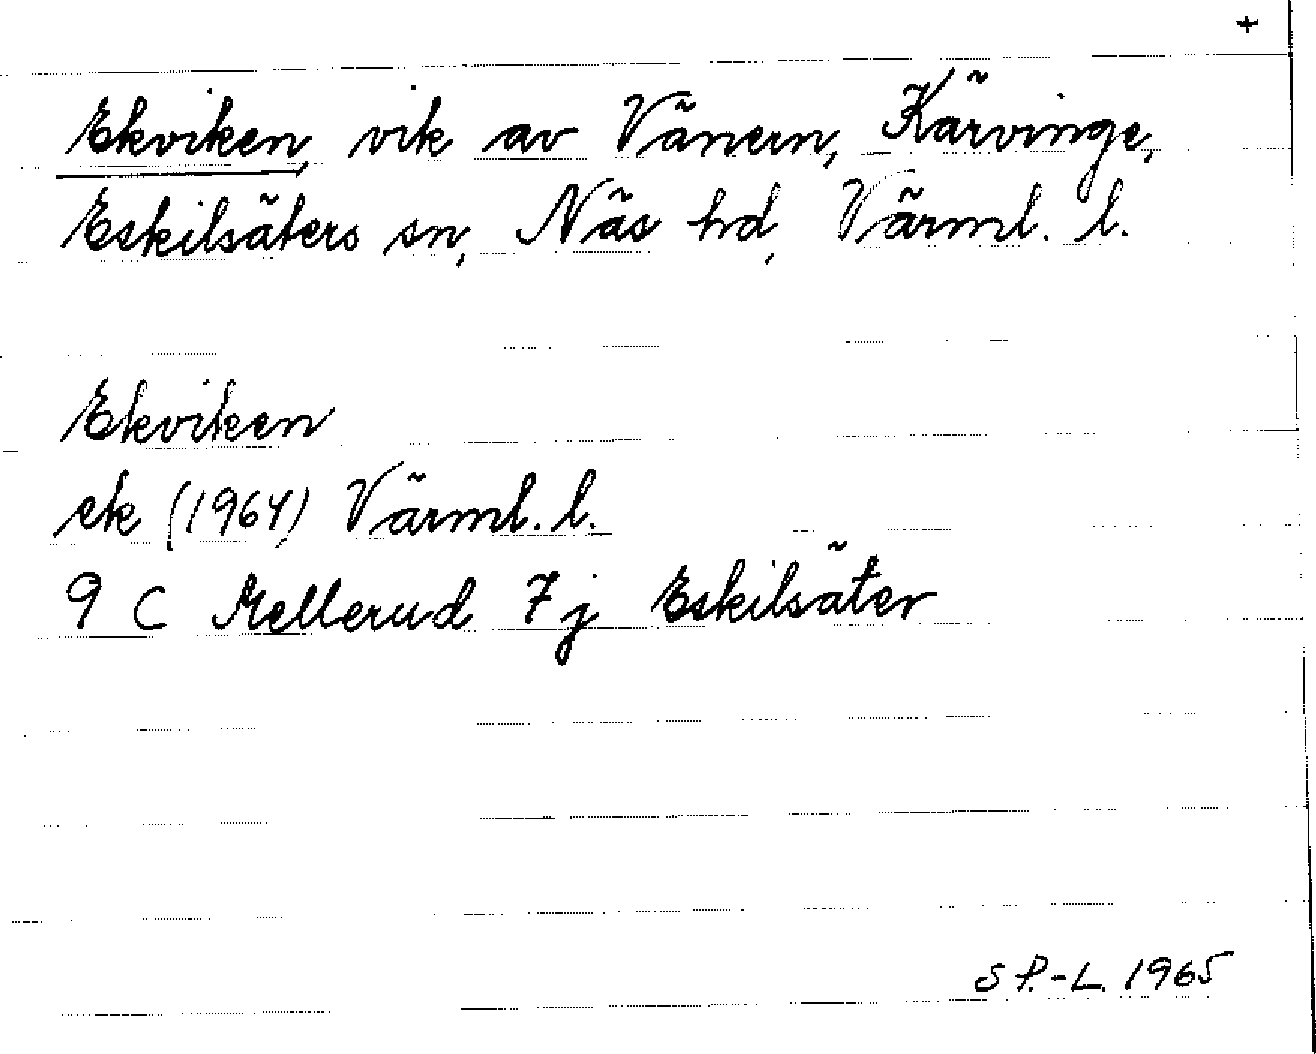 +
Ekviken, vik av Vänern, Kärvinge,
Eskilsäters sn, Näs hd, Värml. l.
Ekviken
ek (1964) Värml. l.
9 C Mellerud 7j Eskilsäter
S P.-L. 1965